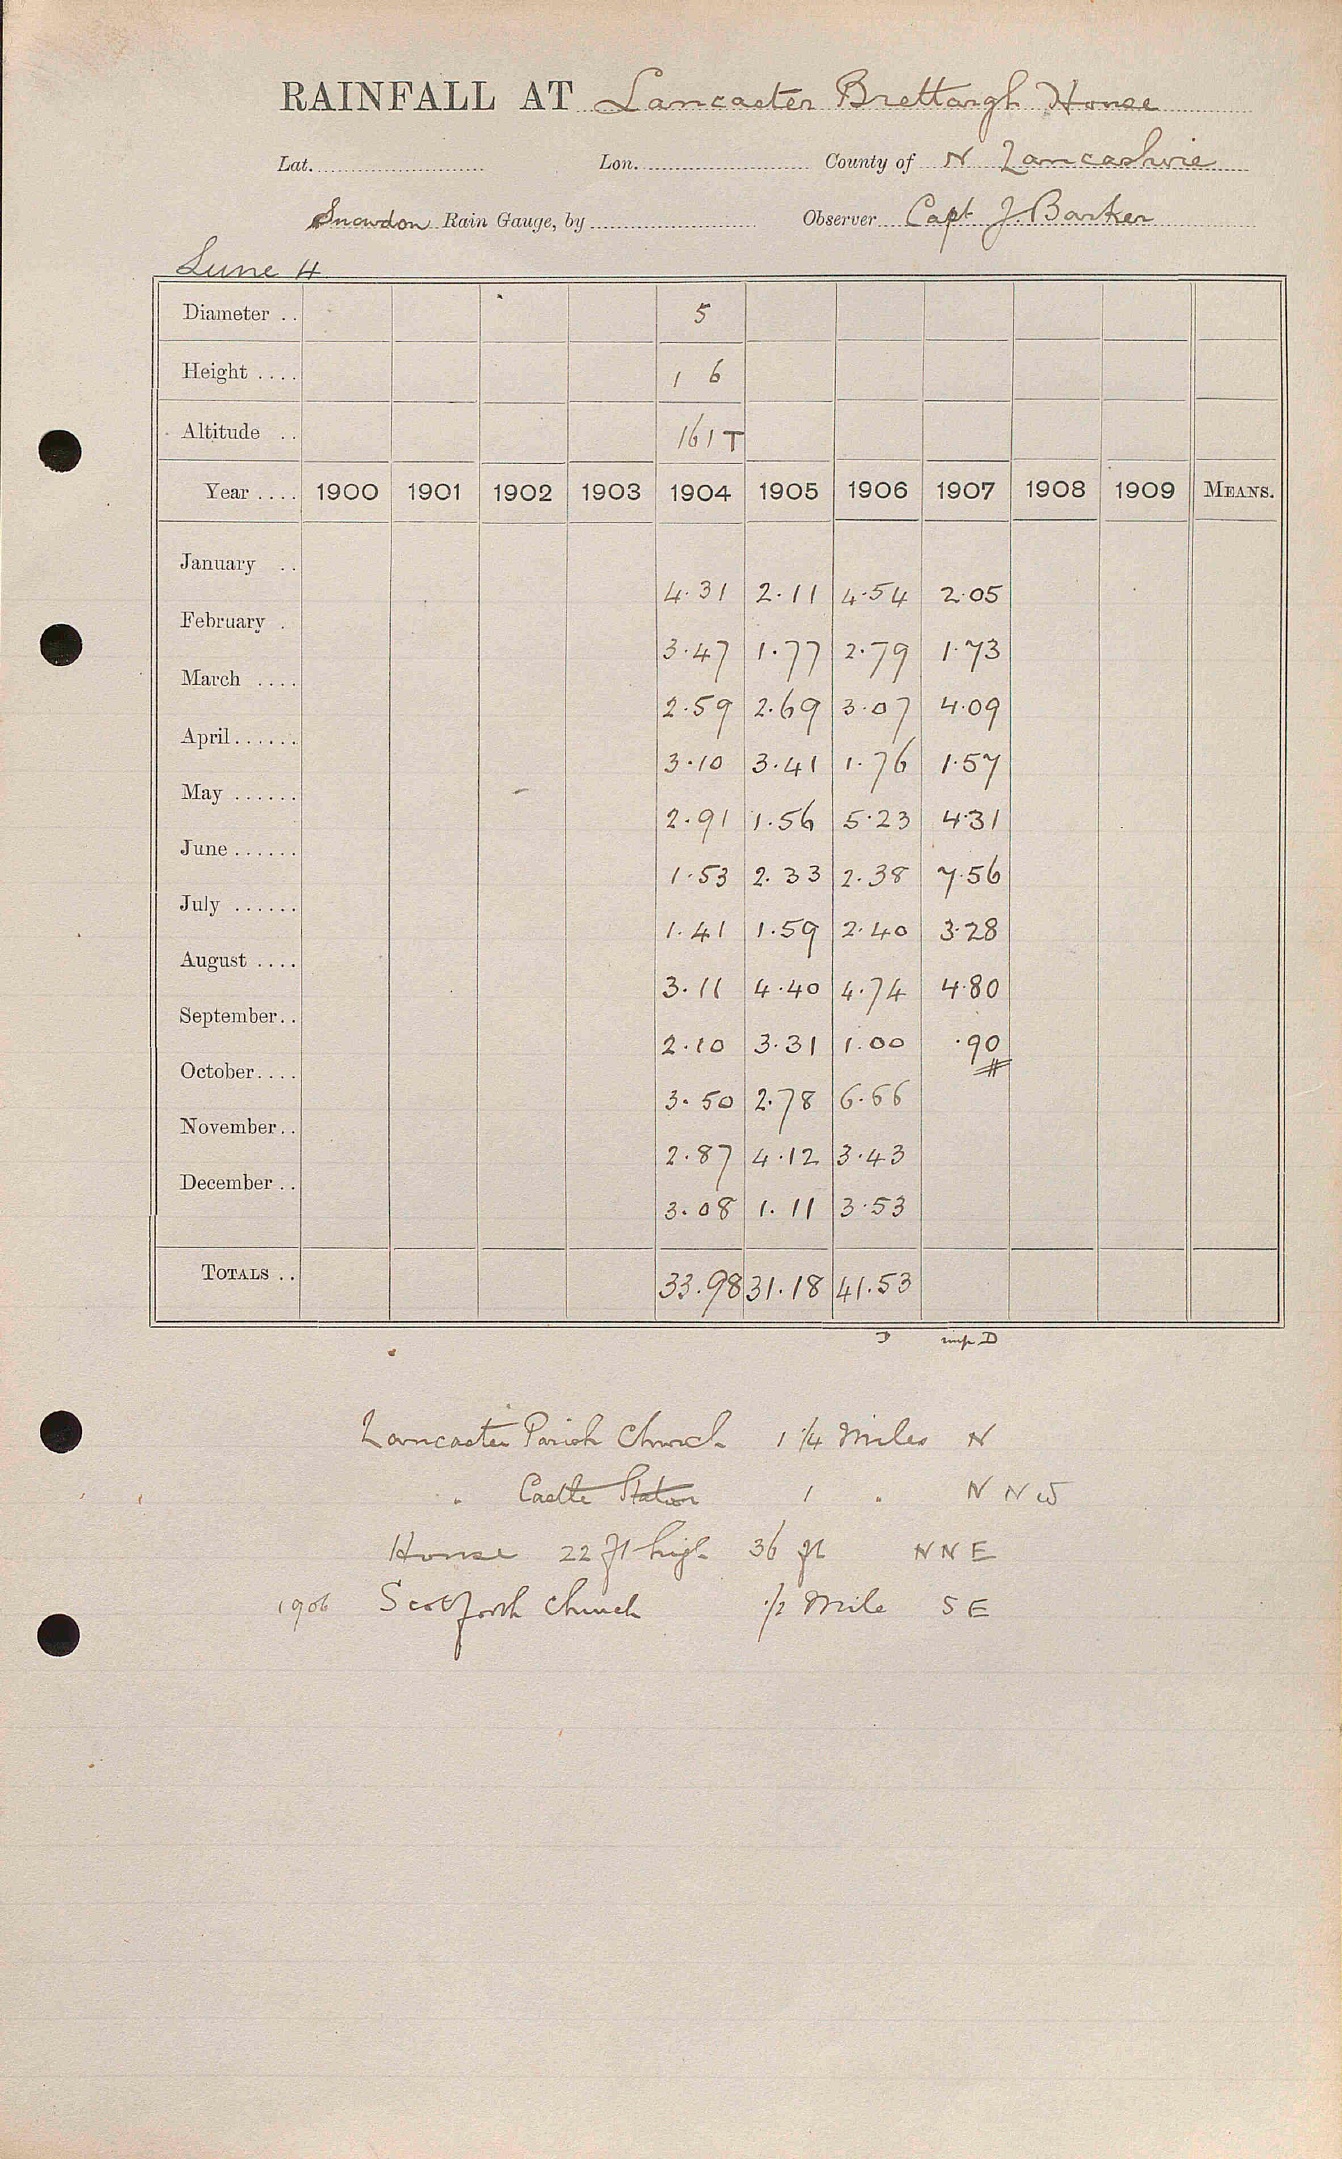 RAINFALL AT Lancaster Brettargh House
Lat. Lon. County of N Lancashire
Snowdon Rain Gauge, by Observer Capt J. Barker
Lune 4
Diameter .. 5
Height .... 1 6
Altitude .. 161 T
Year .... 1900 1901 1902 1903 1904 1905 1906 1907 1908 1909 MEANS.
January .. 4.31 2.11 4.54 2.05
February . 3.47 1.77 2.79 1.73
March .... 2.59 2.69 3.07 4.09
April...... 3.10 3.41 1.76 1.57
May ...... 2.91 1.56 5.23 4.31
June...... 1.53 2.33 2.38 7.56
July ...... 1.41 1.59 2.40 3.28
August .... 3.11 4.40 4.74 4.80
September.. 2.10 3.31 1.00 .90
October.... 3.50 2.78 6.66
November.. 2.87 4.12 3.43
December .. 3.08 1.11 3.53
TOTALS .. 33.98 31.18 41.53
D imp. D
Lancaster Parish Church 1 1/4 Miles N
" Castle Station 1 " N N W
House 22 ft high 36 ft N N E
1906 Scotforth Church 1/2 Mile S E